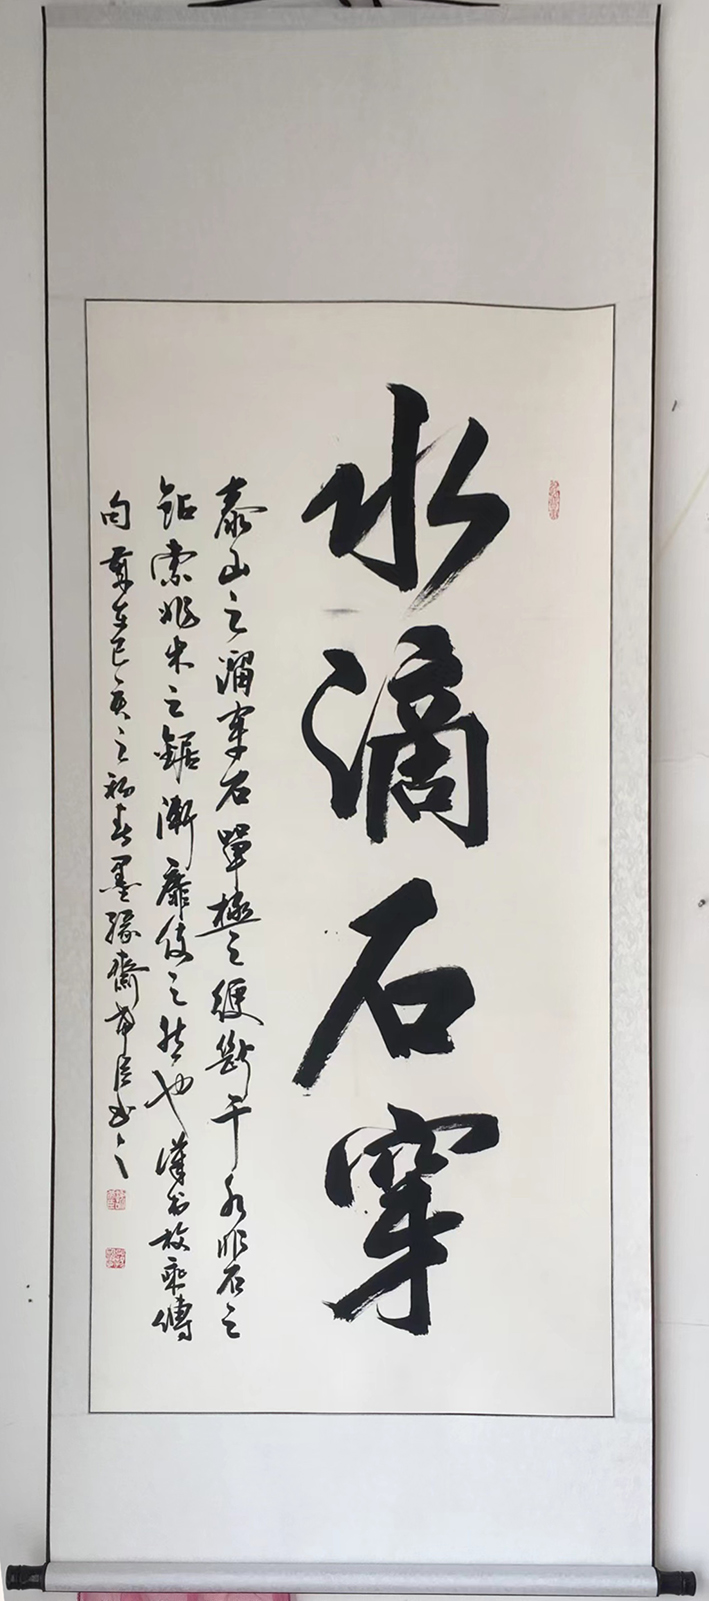 水滴石穿
泰山之溜穿石單極之綆斷干水非石之
鉆索非木之鋸漸靡使之然也漢書枚乘傳
句 歲在己亥之初春墨緣齋